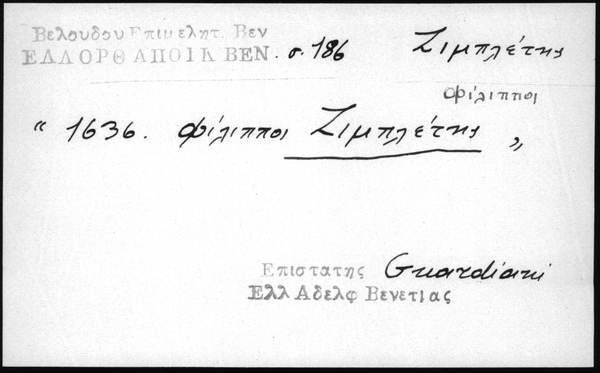 Βελουδου Επιμελητ. Βεν
ΕΛΛΟΡΘ ΑΠΟΙΚ ΒΕΝ. σ. 186 Ζιμπλέτης
Φίλιπποι
“ 1636. Φίλιπποι Ζιμπλέτης ”
Επιστατης Guardiani
Ελλ Αδελφ Βενετιας